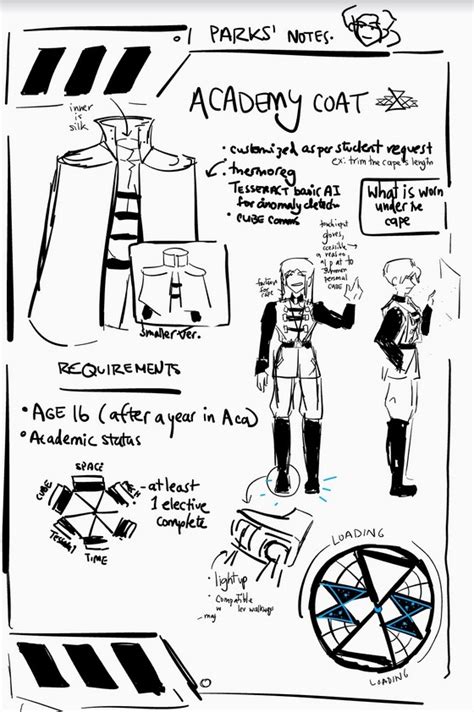 PARKS' NOTES.
ACADEMY COAT
inner
is
silk
• customized as per student request
ex: trim the cape's length
• thermoreg
TESSERACT basic AI
for anomaly detection
• CUBE comms
What is worn
under the
cape
smaller ver.
touch input
gloves,
a reason
to
personal
CUBE
REQUIREMENTS
• AGE 16 (after a year in Aca)
• Academic status
SPACE
CUBE
TECH
TIME
- at least
1 elective
complete
• light up
• compatible
w lev walkways
LOADING
LOADING